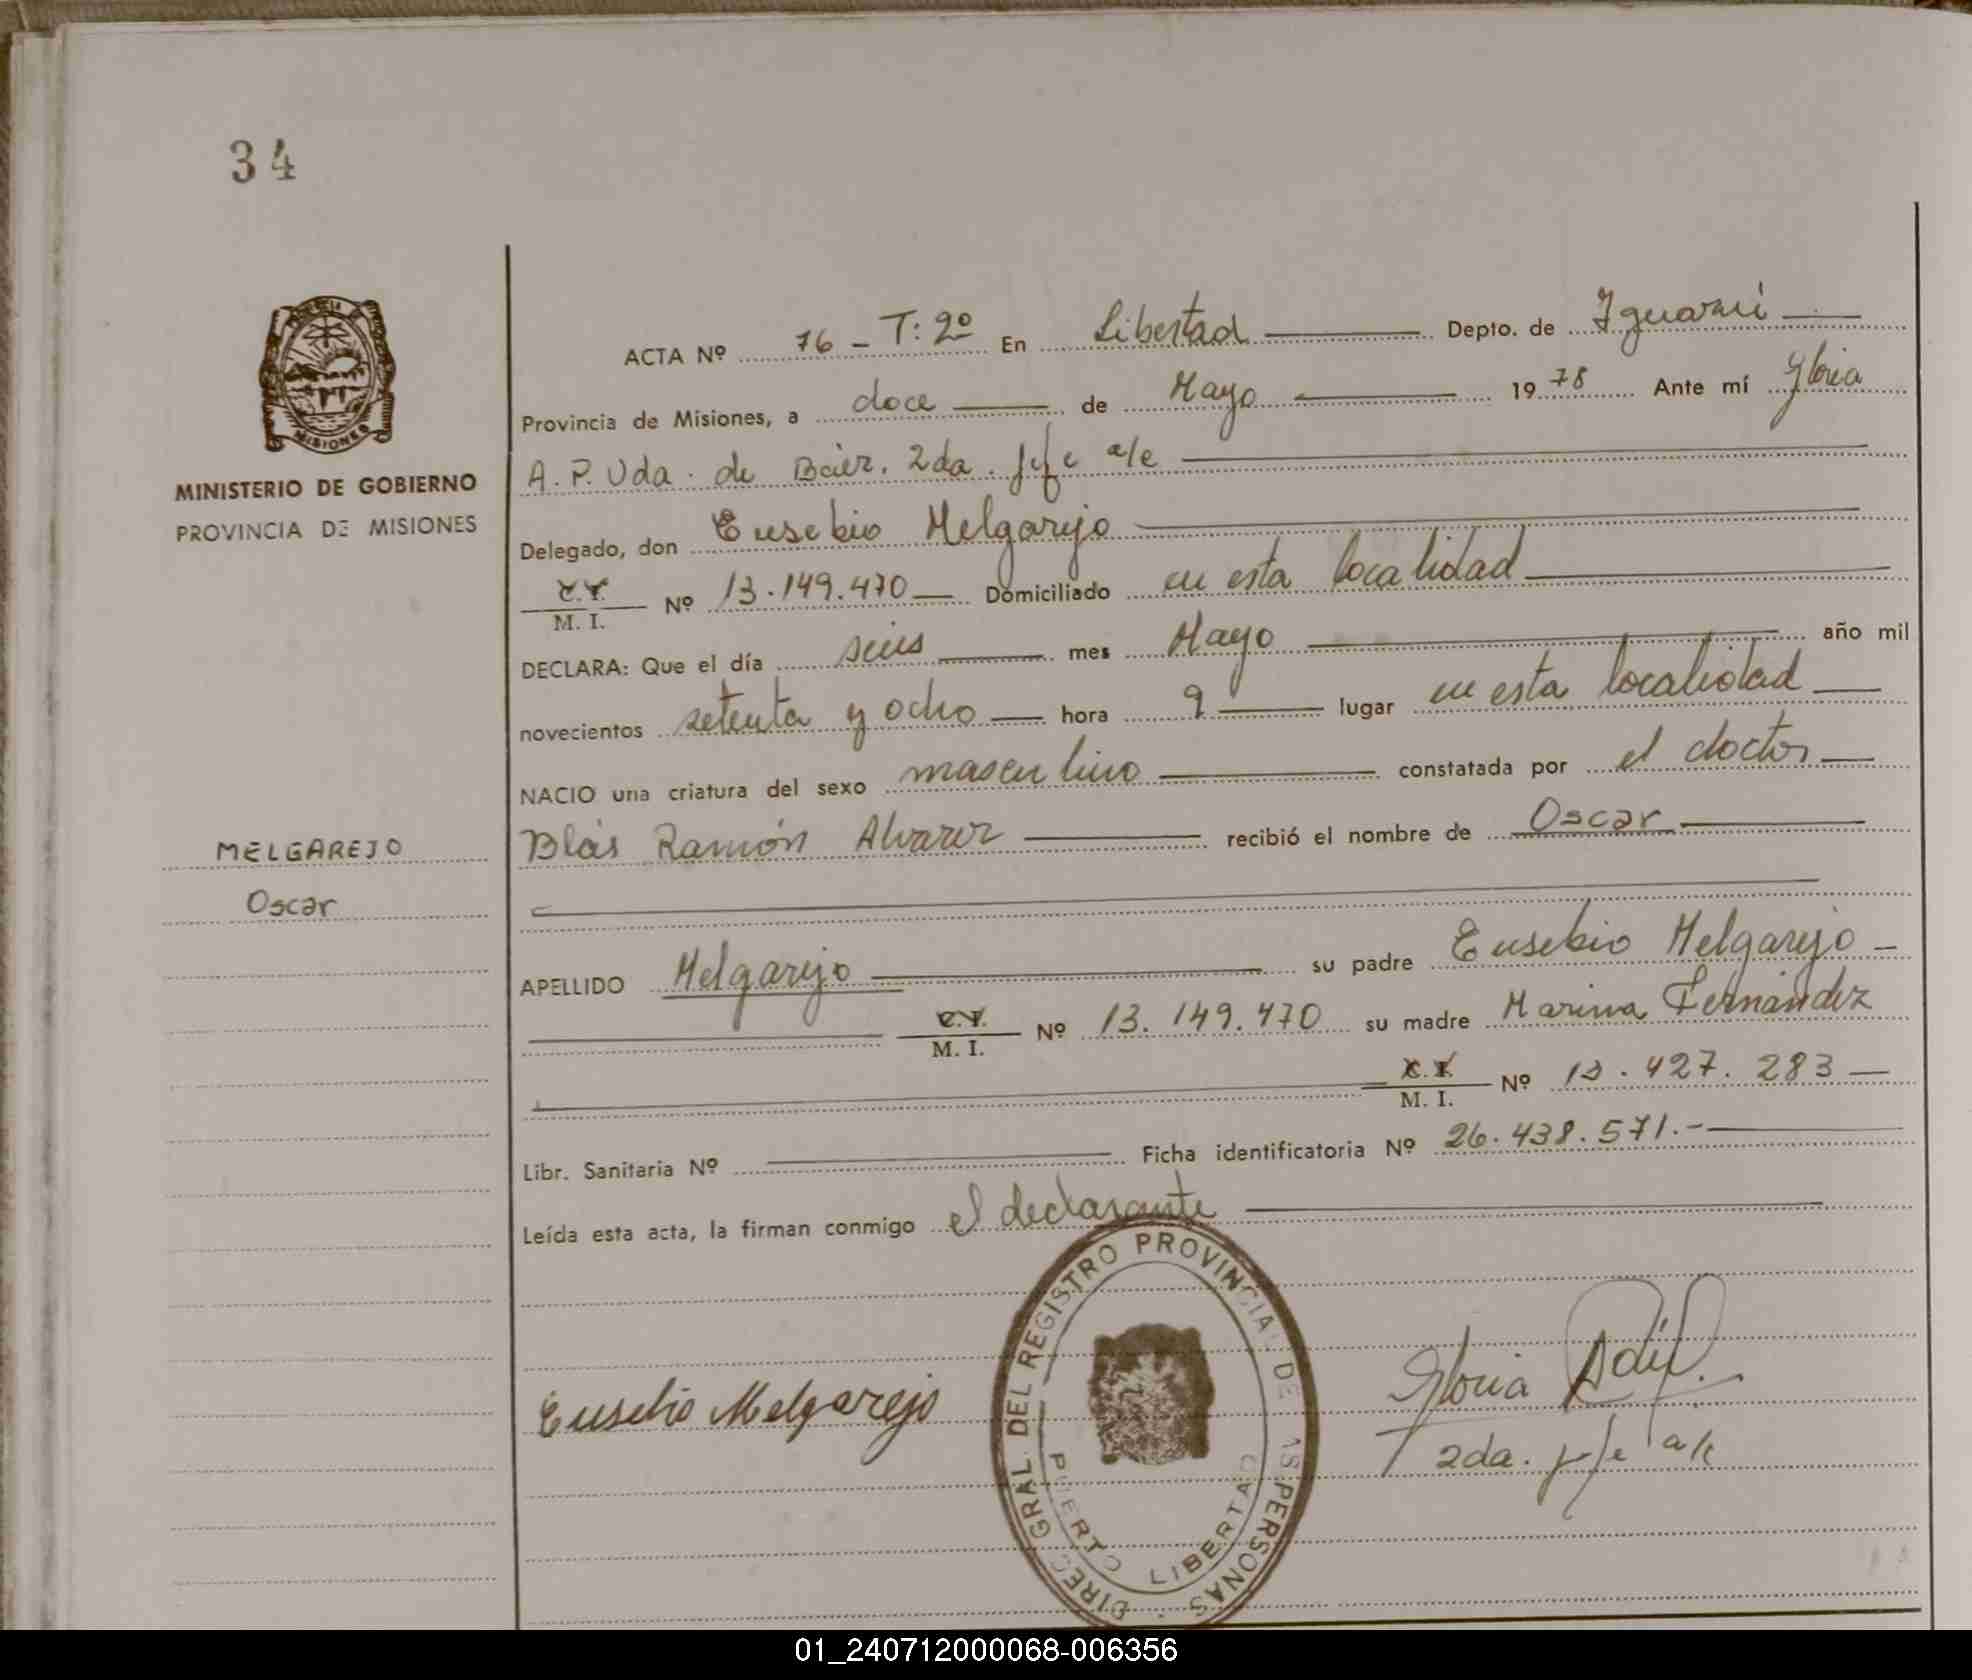 34
MISIONES
MINISTERIO DE GOBIERNO
PROVINCIA DE MISIONES
MELGAREJO
Oscar
ACTA Nº 76 - T: 2º En Libertad Depto. de Iguazú
Provincia de Misiones, a doce de Mayo 1978 Ante mí Gloria
A. P. Vda. de Báez. 2da. jefe a/c
Delegado, don Eusebio Melgarejo
C.I.
M. I. Nº 13.149.470 Domiciliado en esta localidad
DECLARA: Que el día seis mes Mayo año mil
novecientos setenta y ocho hora 9 lugar en esta localidad
NACIO una criatura del sexo masculino constatada por el doctor
Blás Ramón Alvarez recibió el nombre de Oscar
APELLIDO Melgarejo su padre Eusebio Melgarejo
C.I.
M. I. Nº 13.149.470 su madre Marina Fernández
C. I.
M. I. Nº 13.427.283
Libr. Sanitaria Nº Ficha identificatoria Nº 26.438.571.-
Leída esta acta, la firman conmigo el declarante
DIREC GRAL. DEL REGISTRO PROVINCIAL DE LAS PERSONAS
PUERTO LIBERTAD
Eusebio Melgarejo
Gloria
2da. jefe a/c
01_240712000068-006356